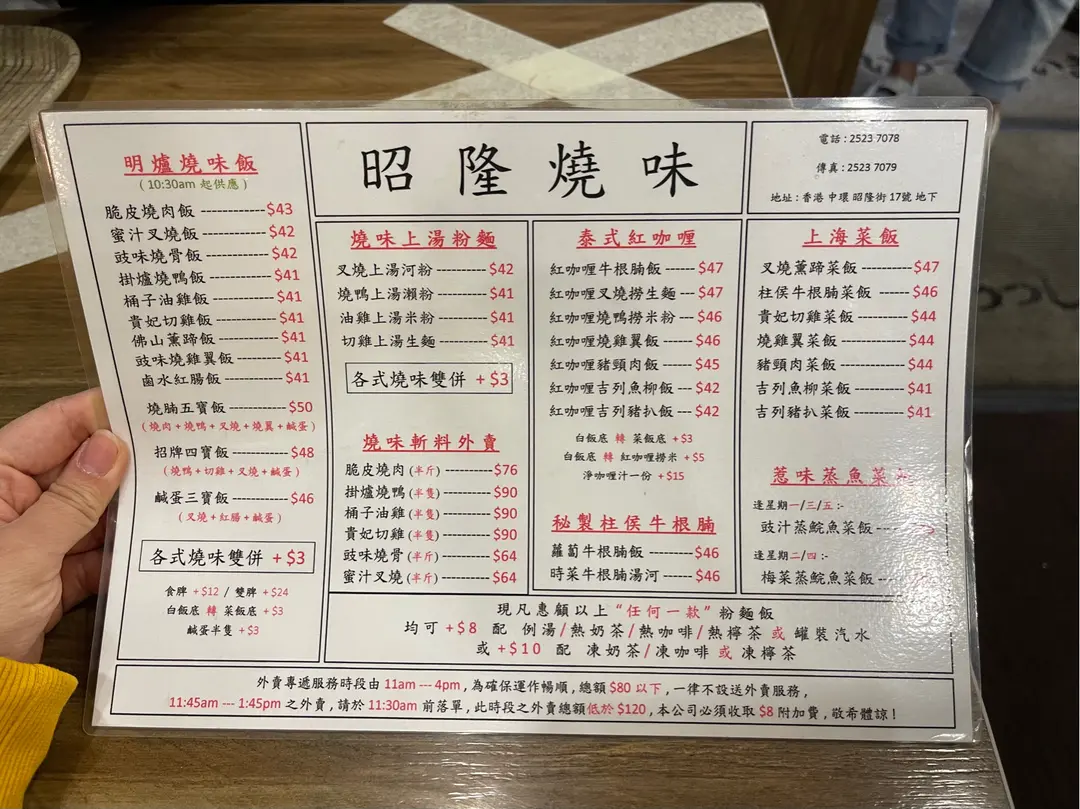 昭隆燒味
電話 : 2523 7078
傳真 : 2523 7079
地址 : 香港 中環 昭隆街 17號 地下
明爐燒味飯
( 10:30am 起供應 )
脆皮燒肉飯 ------------$43
蜜汁叉燒飯 ------------$42
豉味燒骨飯 ------------$42
掛爐燒鴨飯 -----------$41
桶子油雞飯 -----------$41
貴妃切雞飯 -----------$41
佛山薰蹄飯 -----------$41
豉味燒雞翼飯 --------$41
鹵水紅腸飯 -----------$41
燒腩五寶飯 -----------$50
( 燒肉 + 燒鴨 + 叉燒 + 燒翼 + 鹹蛋 )
招牌四寶飯 -----------$48
( 燒鴨 + 切雞 + 叉燒 + 鹹蛋 )
鹹蛋三寶飯 -----------$46
( 叉燒 + 紅腸 + 鹹蛋 )
各式燒味雙併 + $3
食髀 + $12 / 雙髀 + $24
白飯底 轉 菜飯底 + $3
鹹蛋半隻 + $3
燒味上湯粉麵
叉燒上湯河粉 ---------- $42
燒鴨上湯瀨粉 ---------- $41
油雞上湯米粉 ---------- $41
切雞上湯生麵 ---------- $41
各式燒味雙併 + $3
燒味斬料外賣
脆皮燒肉 (半斤) ---------$76
掛爐燒鴨 (半隻) ---------$90
桶子油雞 (半隻) ---------$90
貴妃切雞 (半隻) ---------$90
豉味燒骨 (半斤) ---------$64
蜜汁叉燒 (半斤) ---------$64
泰式紅咖喱
紅咖喱牛根腩飯 ------$47
紅咖喱叉燒撈生麵 ---$47
紅咖喱燒鴨撈米粉 ---$46
紅咖喱燒雞翼飯 ------$46
紅咖喱豬頸肉飯 ------$45
紅咖喱吉列魚柳飯 ---$42
紅咖喱吉列豬扒飯 ---$42
白飯底 轉 菜飯底 + $3
白飯底 轉 紅咖喱撈米 + $5
淨咖喱汁一份 + $15
秘製柱侯牛根腩
蘿蔔牛根腩飯 --------$46
時菜牛根腩湯河 ----- $46
上海菜飯
叉燒薰蹄菜飯 ---------$47
柱侯牛根腩菜飯 ------ $46
貴妃切雞菜飯 --------- $44
燒雞翼菜飯 ------------$44
豬頸肉菜飯 ------------$44
吉列魚柳菜飯 --------- $41
吉列豬扒菜飯 --------- $41
惹味蒸魚菜
逢星期一/三/五 :-
豉汁蒸鯇魚菜飯 ----
逢星期二/四 :-
梅菜蒸鯇魚菜飯 ----
現凡惠顧以上 “任何一款” 粉麵飯
均可 +$8 配 例湯/熱奶茶/熱咖啡/熱檸茶 或 罐裝汽水
或 +$10 配 凍奶茶/凍咖啡 或 凍檸茶
外賣專遞服務時段由 11am --- 4pm , 為確保運作暢順 , 總額 $80 以下 , 一律不設送外賣服務 ,
11:45am --- 1:45pm 之外賣 , 請於 11:30am 前落單 , 此時段之外賣總額低於 $120 , 本公司必須收取 $8 附加費 , 敬希體諒 !